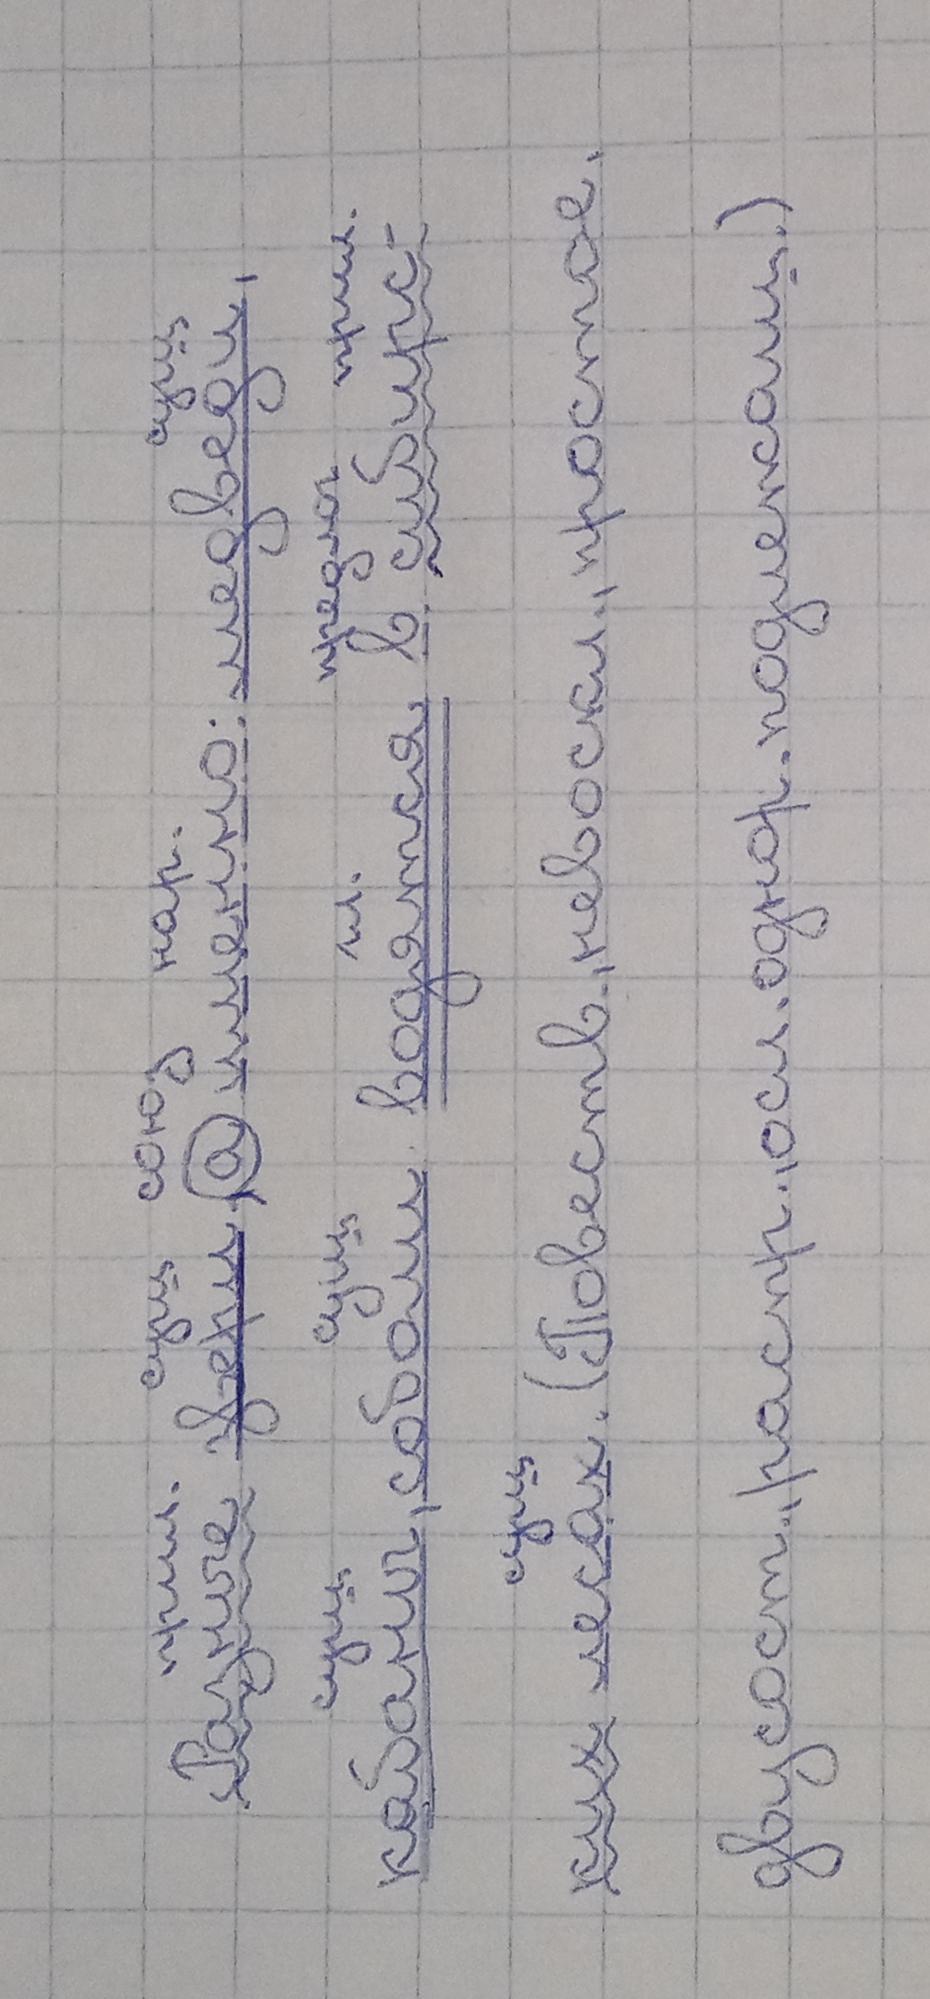 прил. сущ союз нар. сущ
Разные звери, а именно: медведи,
сущ сущ гл. предлог прил.
кабаны, соболи водятся в сибирс-
сущ
ких лесах. (Повеств., невоскл., простое,
двусост., распр., осл. однор. подлежащ.)